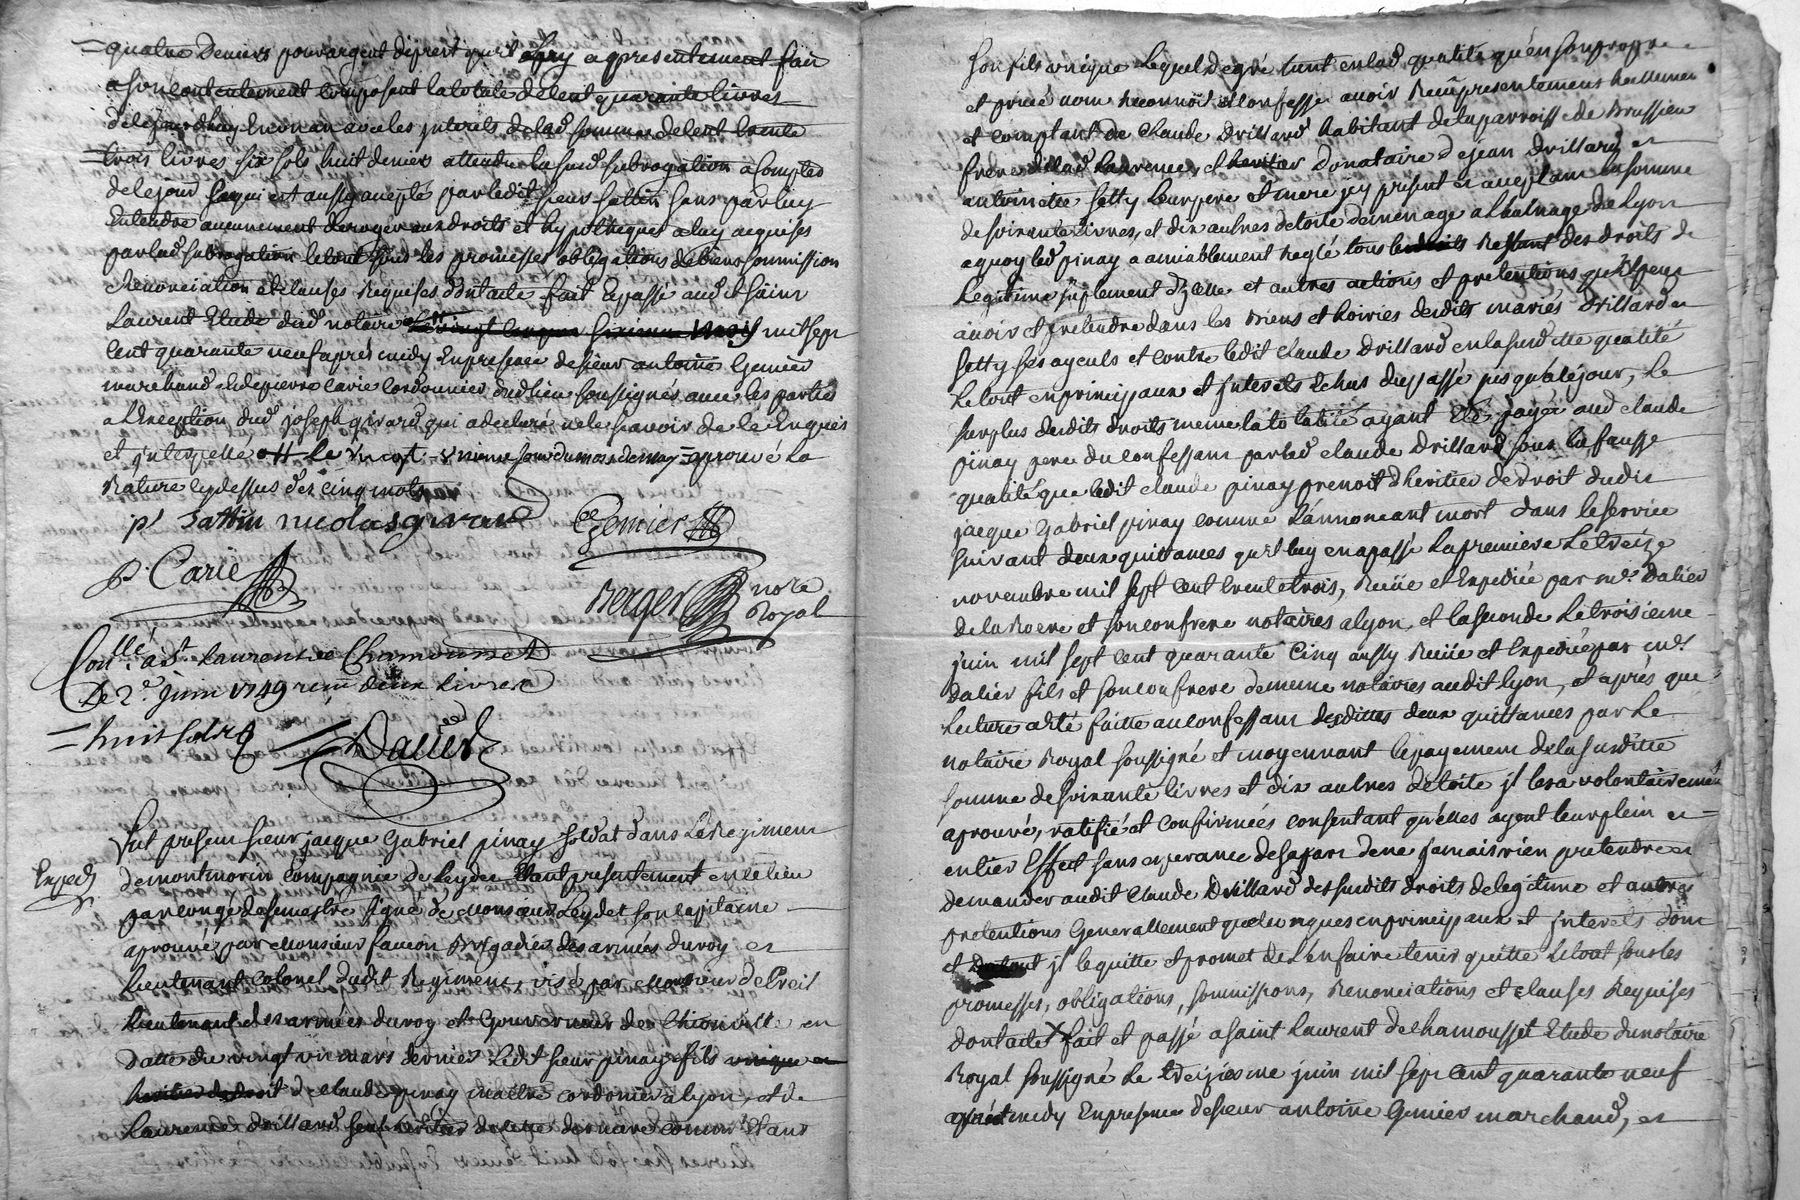 quatre deniers pour argent de prest qu'il luy a presentement fait
a son contentement composant la totale de cent quarante livres
de ce jourdhuy en un an avec les interets de lad somme de cent trente
trois livres six sols huit deniers attendu lasusd subrogation a compter
de ce jour ce qui est aussy accepté par ledit sieur sattin sans par luy
entendre aucunement deroger aux droits et hypotheques a luy acquises
par lad subrogation le tout sous les promesses obligations de biens soumission
renonciation et clauses requises dont acte fait et passé aud saint
Laurent Etude dud notaire mil sept
cent quarante neuf apres midy en presence de sieur antoine Gemier
marchand et de pierre carie cordonnier dud lieu soussignés avec les parties
a l'Exception dud joseph girard qui a declaré ne le scavoir de ce Enquis
et interpellé le vingt unieme jour du mois de may aprouvé la
rature cy dessus des cinq mots
p. sattin nicolas girard Gemier
P. Carie
Berger no.re
Royal
Con.llé a S.t Laurens de Chamousset
Le 2.e juin 1749 reçu deux livres
huit sols
Dalier
Fut present sieur jacque Gabriel pinay soldat dans Le Regiment
Exped
de montmorin compagnie de Leydet Etant presentement en ce lieu
par congé de semestre signé de Monsieur Leydet son capitaine
aprouvé par Monsieur faucon Brigadier des armées du roy et
Lieutenant colonel dudit Regiment, visé par Monsieur de Creil
Lieutenant des armées du roy et Gouverneur de Thionville en
datte du vingt un mars dernier Ledit sieur pinay fils unique et
heritier de droit de claude pinay maitre cordonier a lyon, et de
Laurence drillard seul heritier de cette derniere comme Etant
son fils unique Lequel de gré tant en lad qualité qu'en son propre
et privé nom reconnoit et confesse avoir reçu presentement reellement
et comptant de claude drillard habitant de la parroisse de Brussieu
frere de lad Laurence, et heritier donataire de jean drillard et
antoinette setty leurs pere et mere icy present et acceptant la somme
de soixante livres, et dix aulnes de toile de menage a l'aulnage de Lyon
a quoy led pinay a amiablement reglé tous les droits restant des droits de
Legitime suplement d'icelle et autres actions et pretentions qu'il peut
avoir et pretendre dans les Biens et hoiries desdits mariés drillard et
setty ses ayeuls et contre ledit claude drillard en la susditte qualité
Le tout en principaux et interets echus du passé jusqu'a ce jour, Le
surplus desdits droits meme la totalité ayant Eté payée aud claude
pinay pere du confessant par led claude drillard sous la fausse
qualité que ledit claude pinay prenoit d'heritier de droit dudit
jacque gabriel pinay comme L'annoncant mort dans le service
suivant deux quittances qu'il luy en a passé La premiere Le treize
novembre mil sept cent trente trois, Reçüe et Expediée par m.e Dalier
de la Roere et son confrere notaires a lyon, et la seconde Le troisieme
juin mil sept cent quarante Cinq aussy Reçüe et Expediée par m.e
Dalier fils et son confrere de meme notaires audit lyon, et après que
Lecture a eté faitte au confessant desdittes deux quittances par Le
notaire Royal soussigné et moyennant le payement de la susditte
somme de soixante livres et dix aulnes de toile il les a volontairement
aprouvé, ratifié et confirmées consentant qu'elles ayent leur plein et
entier Effect sans esperance de sa part de ne jamais rien pretendre et
demander audit claude Drillard des susdits droits de legitime et autres
pretentions Generallement quelconques en principaux et interets dont
et il le quitte et promet de l'en faire tenir quitte Le tout sous les
promesses, obligations, soumissions, Renonciations et clauses Requises
dont acte fait et passé a saint Laurent de chamousset Etude du notaire
Royal soussigné Le treizieme juin mil sept Cent quarante neuf
après midy En presence de sieur antoine Gemier marchand, et